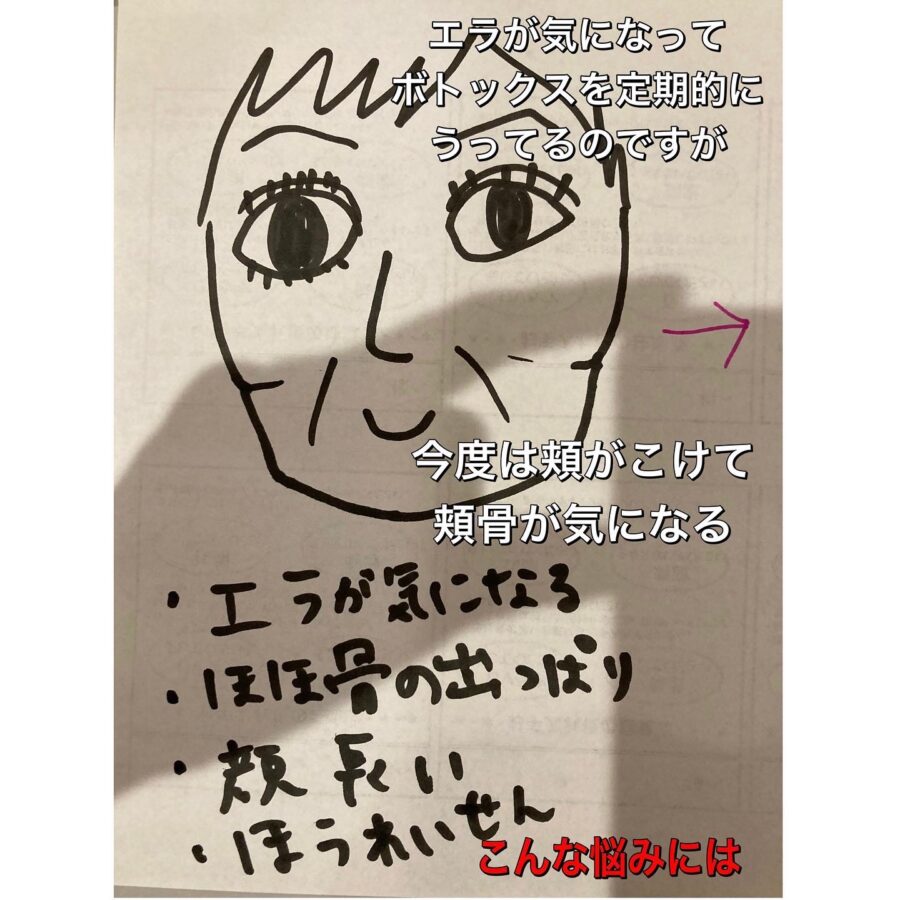 エラが気になって
ボトックスを定期的に
うってるのですが
今度は頬がこけて
頬骨が気になる
・エラが気になる
・ほほ骨の出っぱり
・顔長い
・ほうれいせん
こんな悩みには